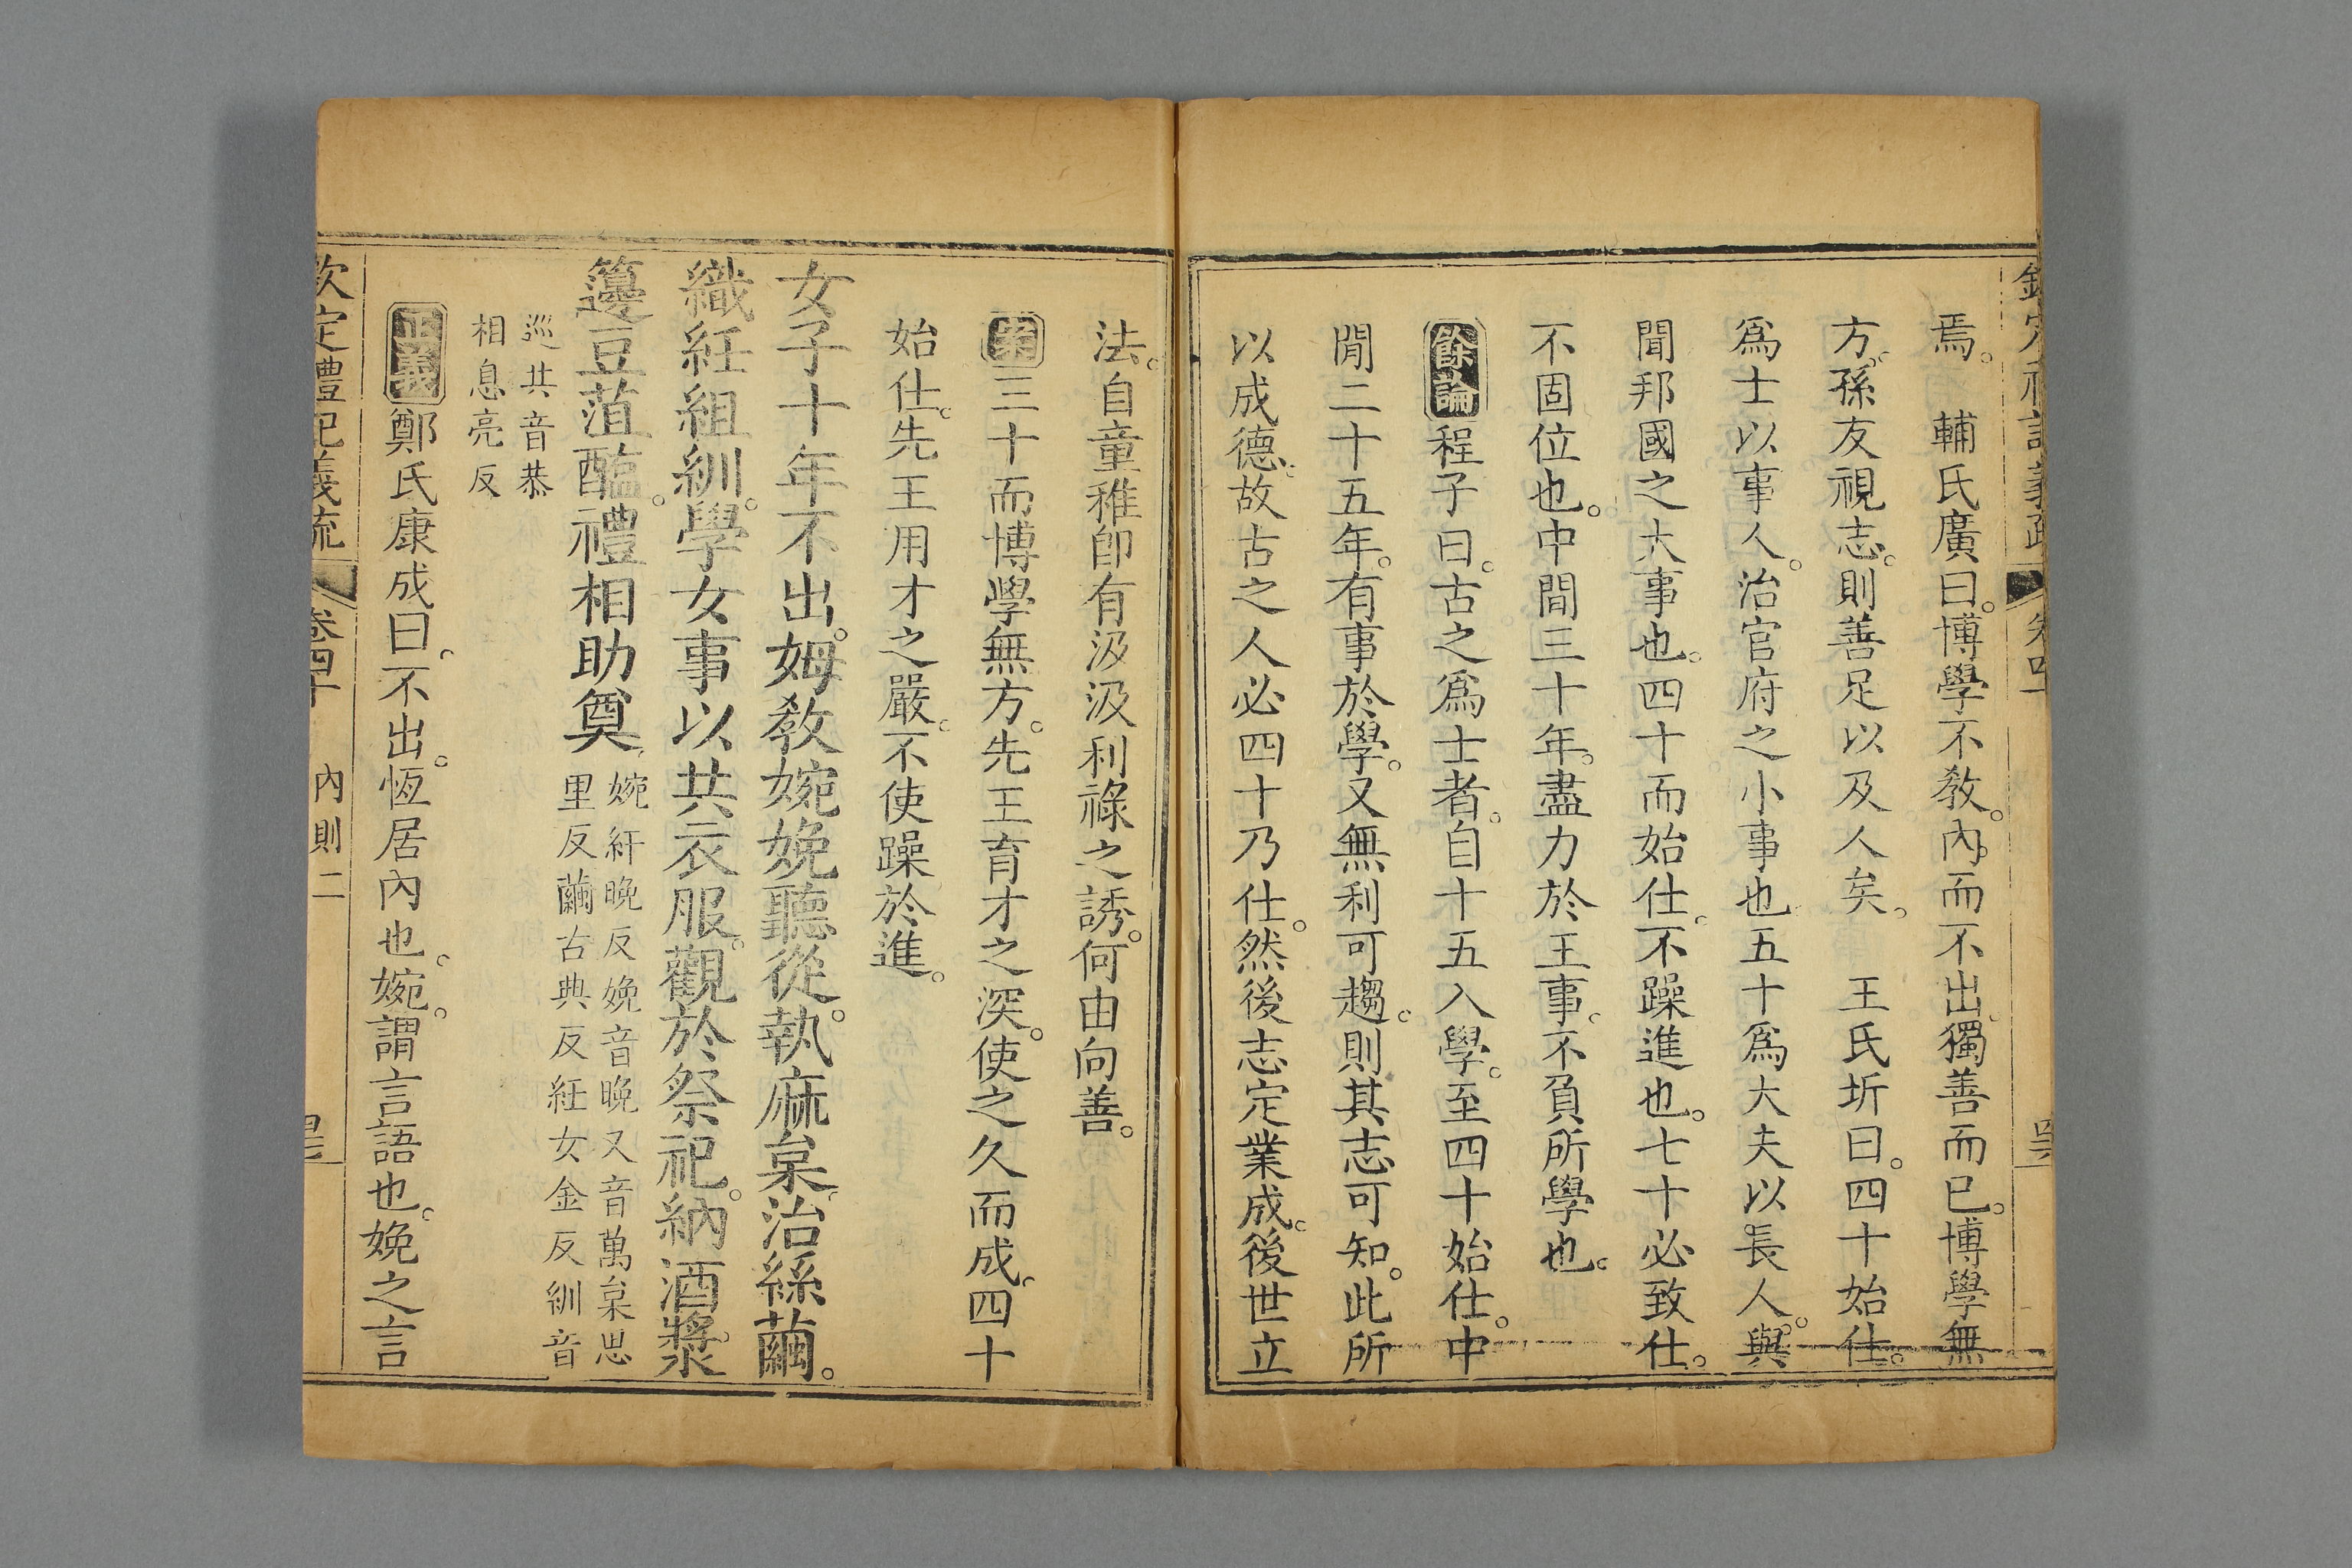 欽定禮記義疏 卷四十
焉。 輔氏廣曰。博學不敎。內而不出。獨善而已。博學無
方。孫友視志。則善足以及人矣。 王氏圻曰。四十始仕。
爲士以事人。治官府之小事也五十爲大夫以長人。與
聞邦國之大事也。四十而始仕。不躁進也。七十必致仕。
不固位也。中間三十年。盡力於王事。不負所學也。
餘論程子曰。古之爲士者。自十五入學。至四十始仕。中
閒二十五年。有事於學。又無利可趨。則其志可知。此所
以成德。故古之人必四十乃仕。然後志定業成。後世立
法。自童稚卽有汲汲利祿之誘。何由向善。
案三十而博學無方。先王育才之深。使之久而成。四十
始仕。先王用才之嚴。不使躁於進。
女子十年不出。姆敎婉娩聽從。執麻枲。治絲繭。
織紝組紃。學女事以共衣服。觀於祭祀。納酒漿
籩豆菹醢。禮相助奠。
婉紆晚反娩音晚又音萬枲思
里反繭古典反紝女金反紃音
巡共音恭
相息亮反
正義鄭氏康成曰。不出。恆居內也。婉。謂言語也。娩之言
欽定禮記義疏 卷四十 內則二